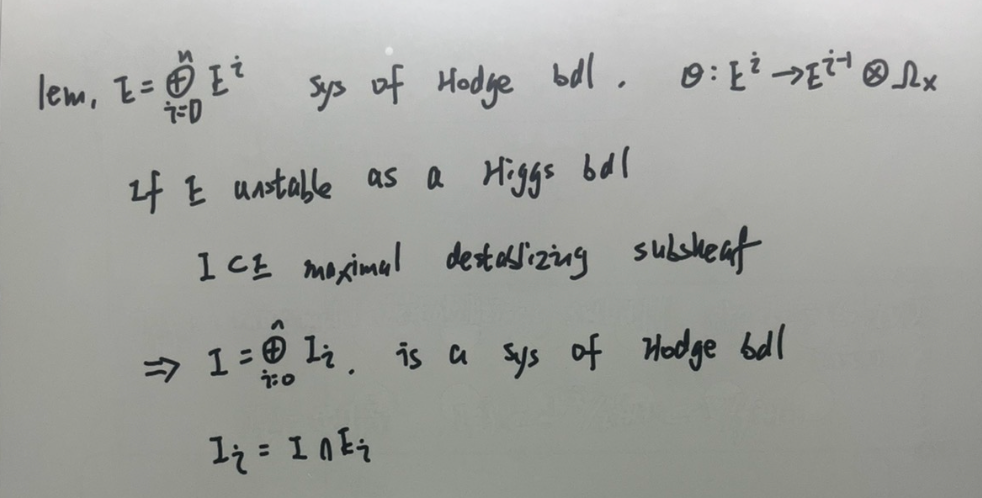 lem. E = ⊕_{i=0}^{n} E^i sys of Hodge bdl. θ: E^i → E^{i-1} ⊗ Ω_X
If E unstable as a Higgs bdl
I ⊂ E maximal destablizing subsheaf
⇒ I = ⊕_{i=0}^{n} I_i. is a sys of Hodge bdl
I_i = I ∩ E_i